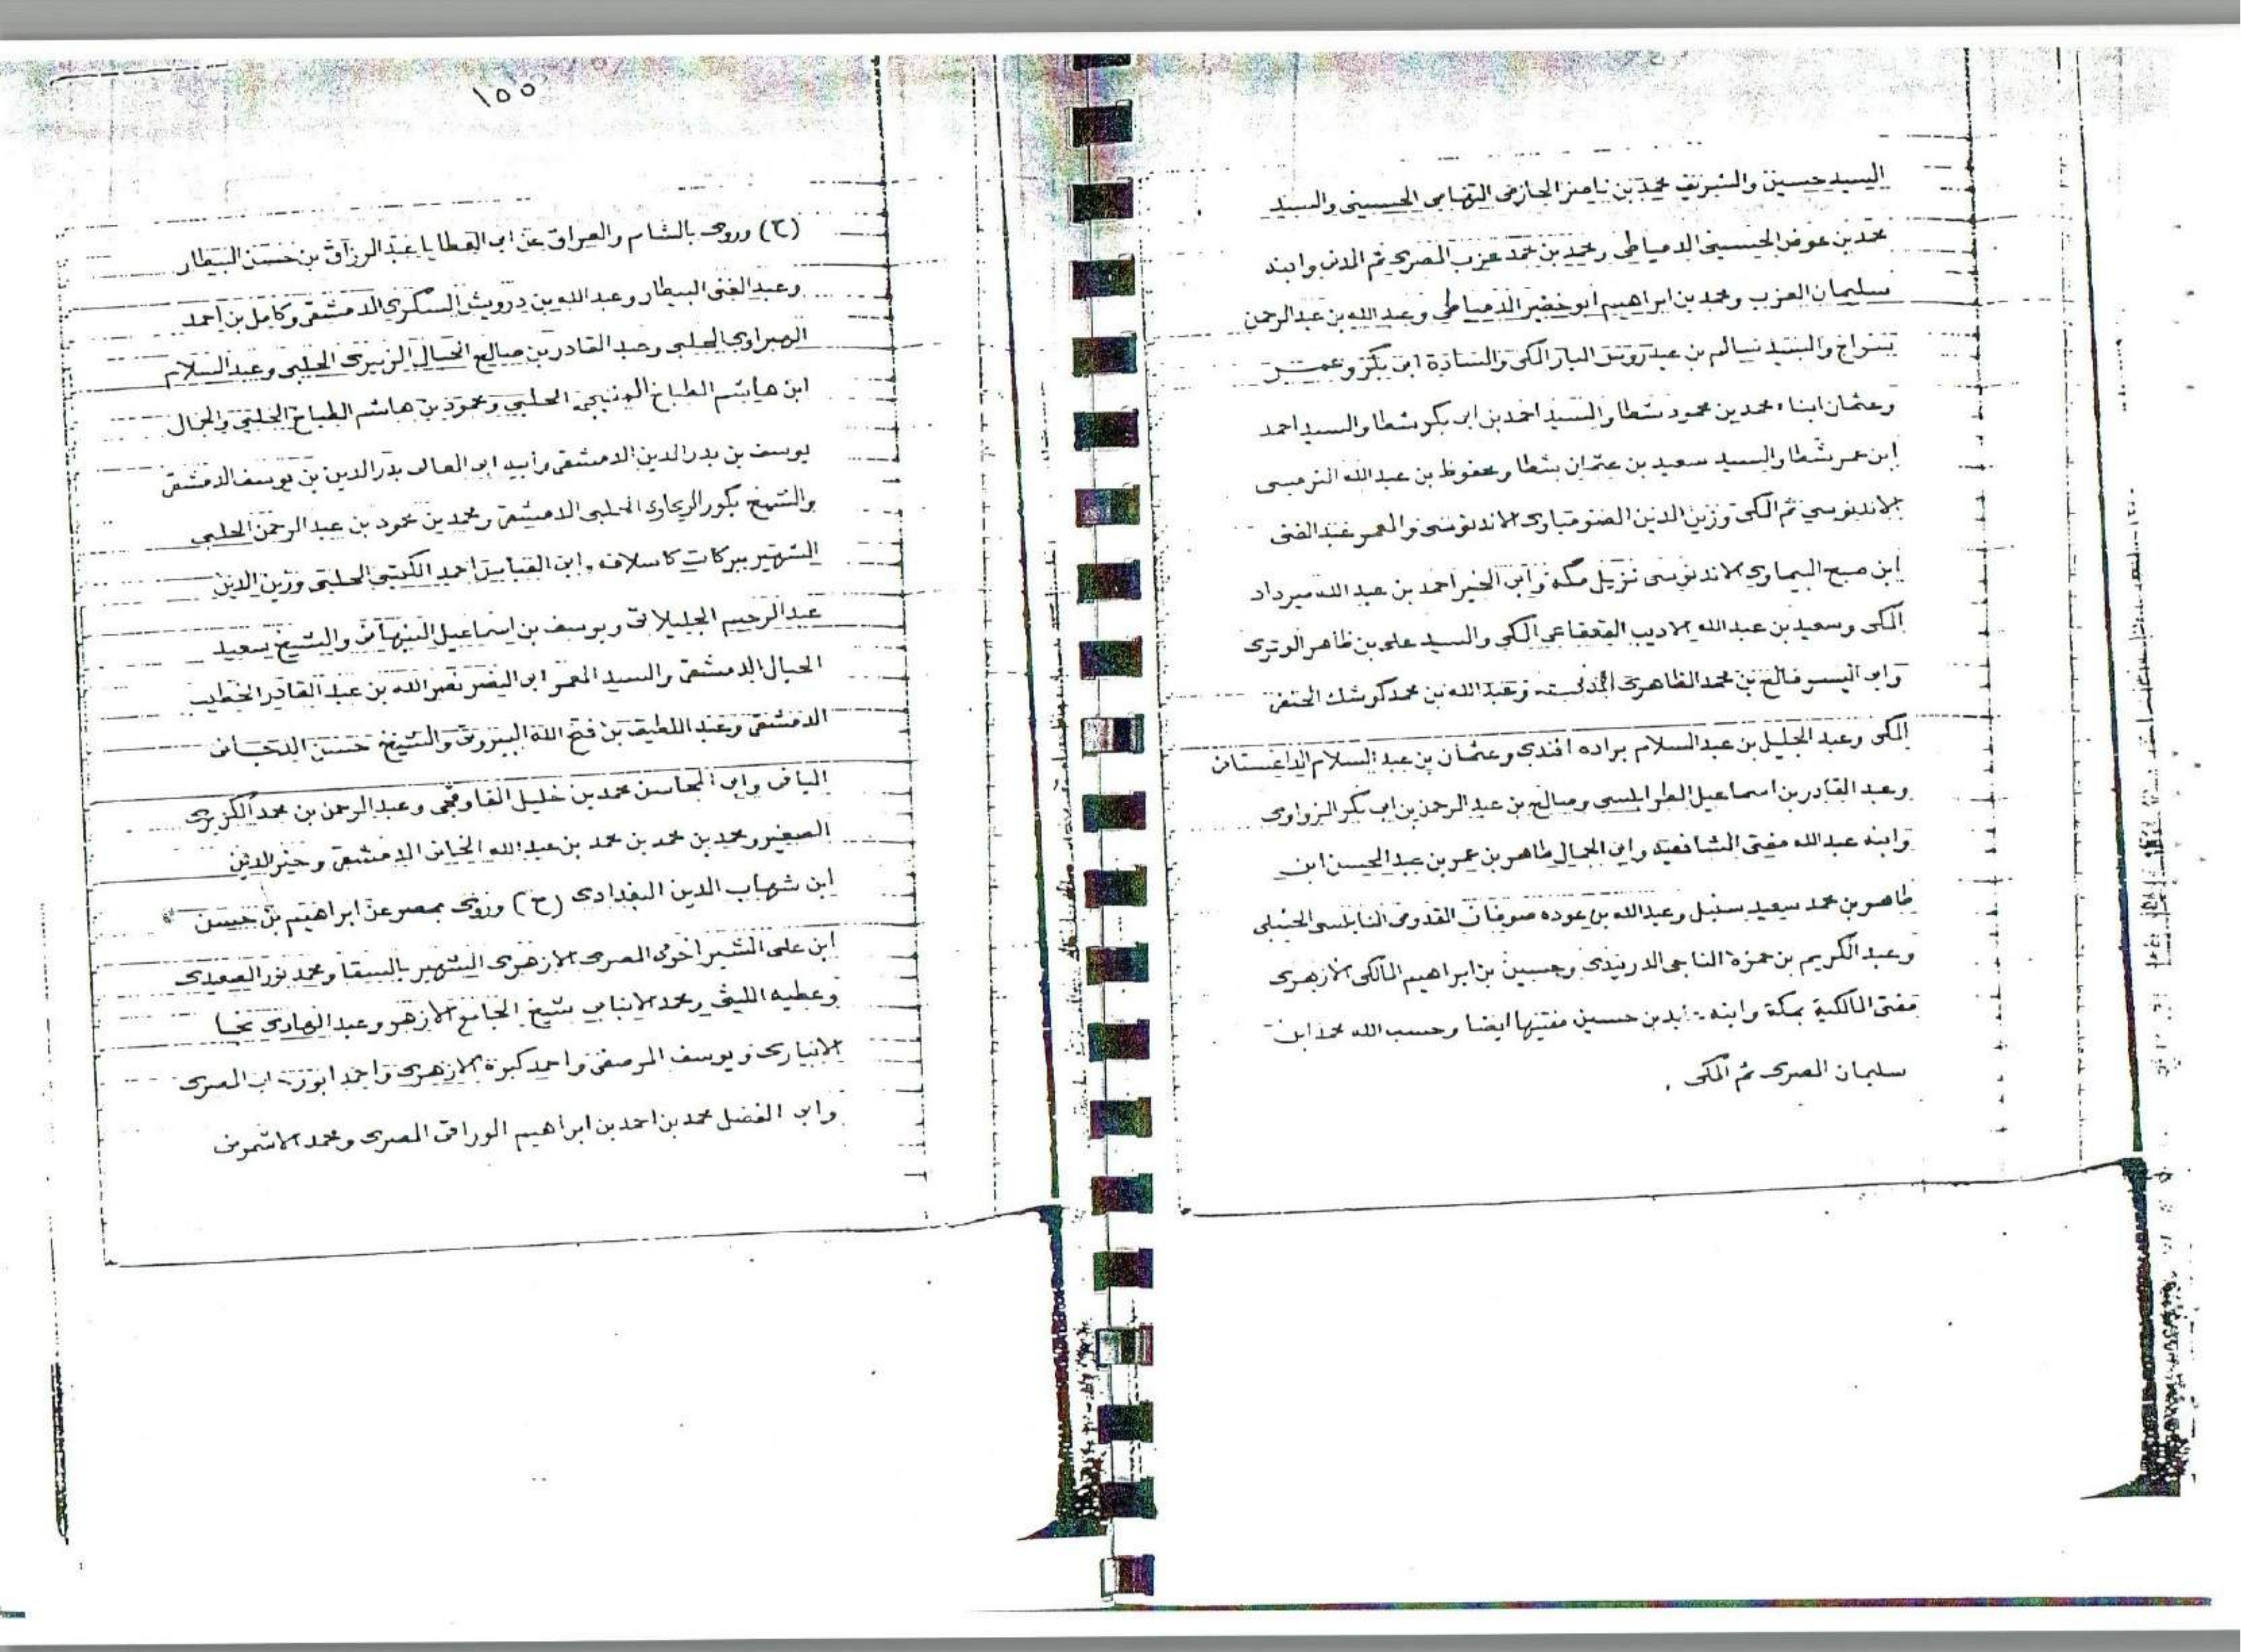 السيد حسين والشريف محمد بن ناصر الحازمى التهامى الحسينى والسيد
محمد بن عوض الحسينى الدمياطى ومحمد بن محمد عزب المصرى ثم المدنى وابنه
سليمان العزب ومحمد بن ابراهيم ابو خضير الدمياطى وعبد الله بن عبد الرحمن
سراج والسيد سالم بن عيدروس البار المكى والسادة ابى بكر وعمر
وعثمان ابناء محمد بن محمود شطا والسيد احمد بن ابى بكر شطا والسيد احمد
ابن عمر شطا والسيد سعيد بن عثمان شطا ومحفوظ بن عبد الله الترمسى
الاندنوسي ثم المكى وزين الدين الاندنوسى والمعمر عبد الغنى
ابن صبح البيماوى الاندنوسى نزيل مكة وابى الخير احمد بن عبد الله ميرداد
المكى وسعيد بن عبد الله الاديب القعقاعى المكى والسيد على بن ظاهر الوترى
وابو اليسر فالح بن محمد الظاهرى وعبد الله بن محمد كوشك الحنفى
المكى وعبد الجليل بن عبد السلام براده افندى وعثمان بن عبد السلام الداغستانى
وعبد القادر بن اسماعيل الطرابلسى وصالح بن عبد الرحمن بن ابى بكر الزواوى
وابنه عبد الله مفتى الشافعية وابى الجمال طاهر بن عمر بن عبد المحسن ابن
طاهر بن محمد سعيد سنبل وعبد الله بن عوده صوفان القدومى النابلسى الحنبلى
وعبد الكريم بن حمزة الناجى الدربندى وحسين بن ابراهيم المالكى الازهرى
مفتى المالكية بمكة وابنه بن حسين مفتيها ايضا وحسب الله محمد ابن
سليمان المصرى ثم المكى .
١٥٥
(ح) وروى بالشام والعراق عن ابى العطايا عبد الرزاق بن حسن البيطار
وعبد الغنى البيطار وعبد الله بن درويش السكرى الدمشقى وكامل بن احمد
الهبراوى الحلبى وعبد القادر بن صالح الزبيرى الحلبى وعبد السلام
ابن هاشم الطباخ الحلبى ومحمود بن هاشم الطباخ الحلبى والجمال
يوسف بن بدر الدين الدمشقى وابيه ابى المعالى بدر الدين بن يوسف الدمشقى
والشيخ بكور الريحاوى الحلبى الدمشقى ومحمد بن محمود بن عبد الرحمن الحلبى
الشهير ببركات كاسلافه وابى العباس احمد الكتبى الحلبى وزين الدين
عبد الرحيم الجليلاتى ويوسف بن اسماعيل النبهانى والشيخ سعيد
الحبال الدمشقى والسيد المعمر ابى النصر نصر الله بن عبد القادر الخطيب
الدمشقى وعبد اللطيف بن فتح الله البيروتى والشيخ حسن الدجانى
اليافى وابى المحاسن محمد بن خليل القاوقجى وعبد الرحمن بن محمد الكزبرى
الصغير ومحمد بن محمد بن محمد بن عبد الله الخانى الدمشقى وخير الدين
ابن شهاب الدين البغدادى (ح) وروى بمصر عن ابراهيم بن حسن
ابن على الشبراخوى المصرى الازهرى الشهير بالسقا ومحمد نور الصعيدى
وعطيه الليثى ومحمد الانبابى شيخ الجامع الازهر وعبد الهادى نجا
الابيارى ويوسف المرصفى واحمد كبوة الازهرى واحمد المصرى
وابى الفضل محمد بن احمد بن ابراهيم الوراقى المصرى ومحمد الاشمونى